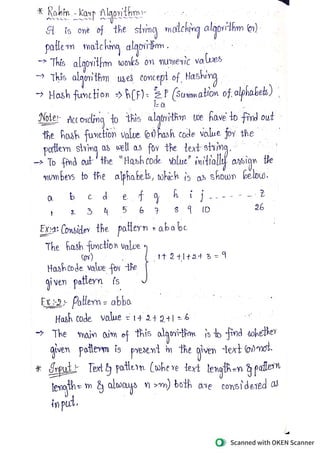 * Rabin - Karp Algorithm:-
It is one of the string matching algorithm (or)
pattern matching algorithm.
→ This algorithm works on numeric values
→ This algorithm uses concept of Hashing
→ Hash function → h(P) = Σ P (Summation of alphabets)
i=0
Note:- According to this algorithm we have to find out
the hash function value (or) hash code value for the
pattern string as well as for the text string.
→ To find out the "Hash code value" initially assign the
numbers to the alphabets, which is as shown below.
a b c d e f g h i j - - - - - - z
1 2 3 4 5 6 7 8 9 10 26
Ex-1: Consider the pattern = ababc
The hash function value
(or)
Hashcode value for the
given pattern is
1+2+1+2+3 = 9
Ex-2:- Pattern = abba
Hash code value = 1+2+2+1 = 6
→ The main aim of this algorithm is to find whether
given pattern is present in the given text (or) not.
* Input:- Text & pattern (where text length = n & pattern
length = m & always n>m) both are considered as
input.
Scanned with OKEN Scanner